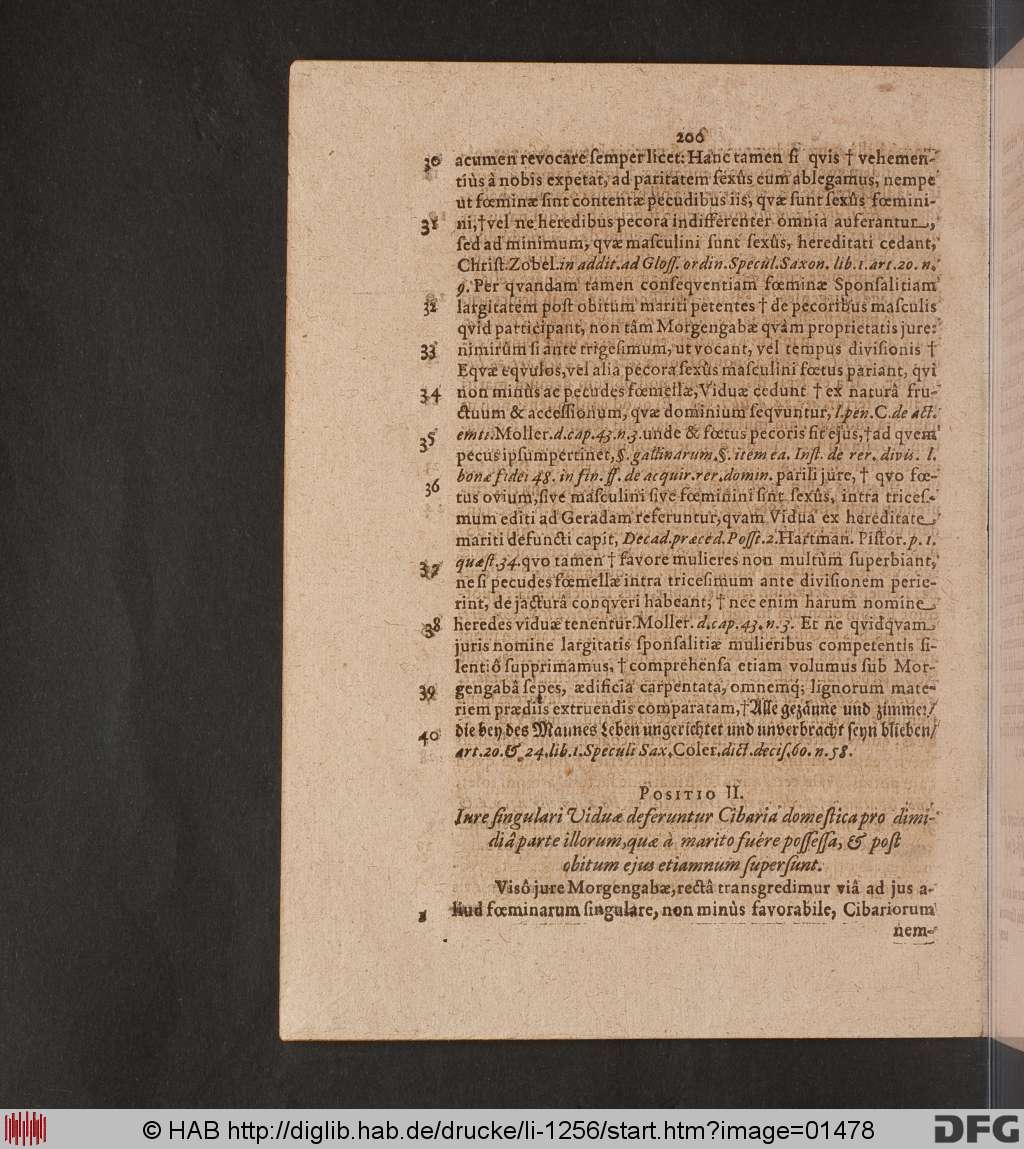 206
30 acumen revocare semper licet: Hanc tamen si qvis † vehemen-
tiùs â nobis expetat, ad paritatem sexûs eum ablegamus, nempe
ut fœminæ sint contentæ pecudibus iis, qvæ sunt sexûs fœmini-
31 ni, † vel ne heredibus pecora indifferenter omnia auferantur,
sed ad minimum, qvæ masculini sunt sexûs, hereditati cedant,
Christ. Zobel. in addit. ad Gloss. ordin. Specul. Saxon. lib. 1. art. 20. n.
9. Per qvandam tamen conseqventiam fœminæ Sponsalitiam
32 largitatem post obitum mariti petentes † de pecoribus masculis
qvid participant, non tâm Morgengabæ qvâm proprietatis jure:
33 nimirùm si ante trigesimum, ut vocant, vel tempus divisionis †
Eqvæ eqvulos, vel alia pecora sexûs masculini fœtus pariant, qvi
34 non minùs ac pecudes fœmellæ, Viduæ cedunt † ex naturâ fru-
ctuum & accessionum, qvæ dominium seqvuntur, l. pen. C. de act.
35 emti. Moller. d. cap. 43. n. 3. unde & fœtus pecoris sit ejus, † ad qvem
pecus ipsum pertinet, §. gallinarum. §. item ea. Inst. de rer. divis. l.
36 bonæ fidei 48. in fin. ff. de acquir. rer. domin. parili jure, † qvo fœ-
tus ovium, sive masculini sive fœminini sint sexûs, intra trices-
mum editi ad Geradam referuntur, qvam Vidua ex hereditate
mariti defuncti capit, Decad. præced. Posit. 2. Hartman. Pistor. p. 1.
37 quæst. 34. qvo tamen † favore mulieres non multùm superbiant,
ne si pecudes fœmellæ intra tricesimum ante divisionem perie-
rint, de jacturâ conqveri habeant, † nec enim harum nomine
38 heredes viduæ tenentur. Moller. d. cap. 43. n. 3. Et ne qvidqvam
juris nomine largitatis sponsalitiæ mulieribus competentis si-
lentiô supprimamus, † comprehensa etiam volumus sub Mor-
39 gengabâ sepes, ædificia carpentata, omnemq; lignorum mate-
riem prædiis extruendis comparatam, † Alle gezäune und zimmer/
40 die bey des Mannes Leben ungerichtet und unverbracht seyn blieben/
art. 20. & 24. lib. 1. Speculi Sax. Coler. dict. decis. 60. n. 58.
POSITIO II.
Iure singulari Viduæ deferuntur Cibaria domestica pro dimi-
diâ parte illorum, quæ à marito fuére possessa, & post
obitum ejus etiamnum supersunt.
Visô jure Morgengabæ, rectâ transgredimur viâ ad jus a-
1 liud fœminarum singulare, non minùs favorabile, Cibariorum
nem-
© HAB http://diglib.hab.de/drucke/li-1256/start.htm?image=01478
DFG